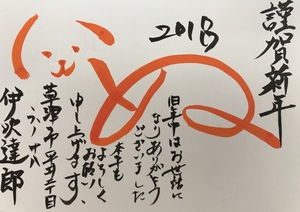 謹賀新年
2018
いぬ
旧年中はお世話に
なりありがとう
ございました
本年も
よろしく
お願い
申し上げます。
草津市
達郎